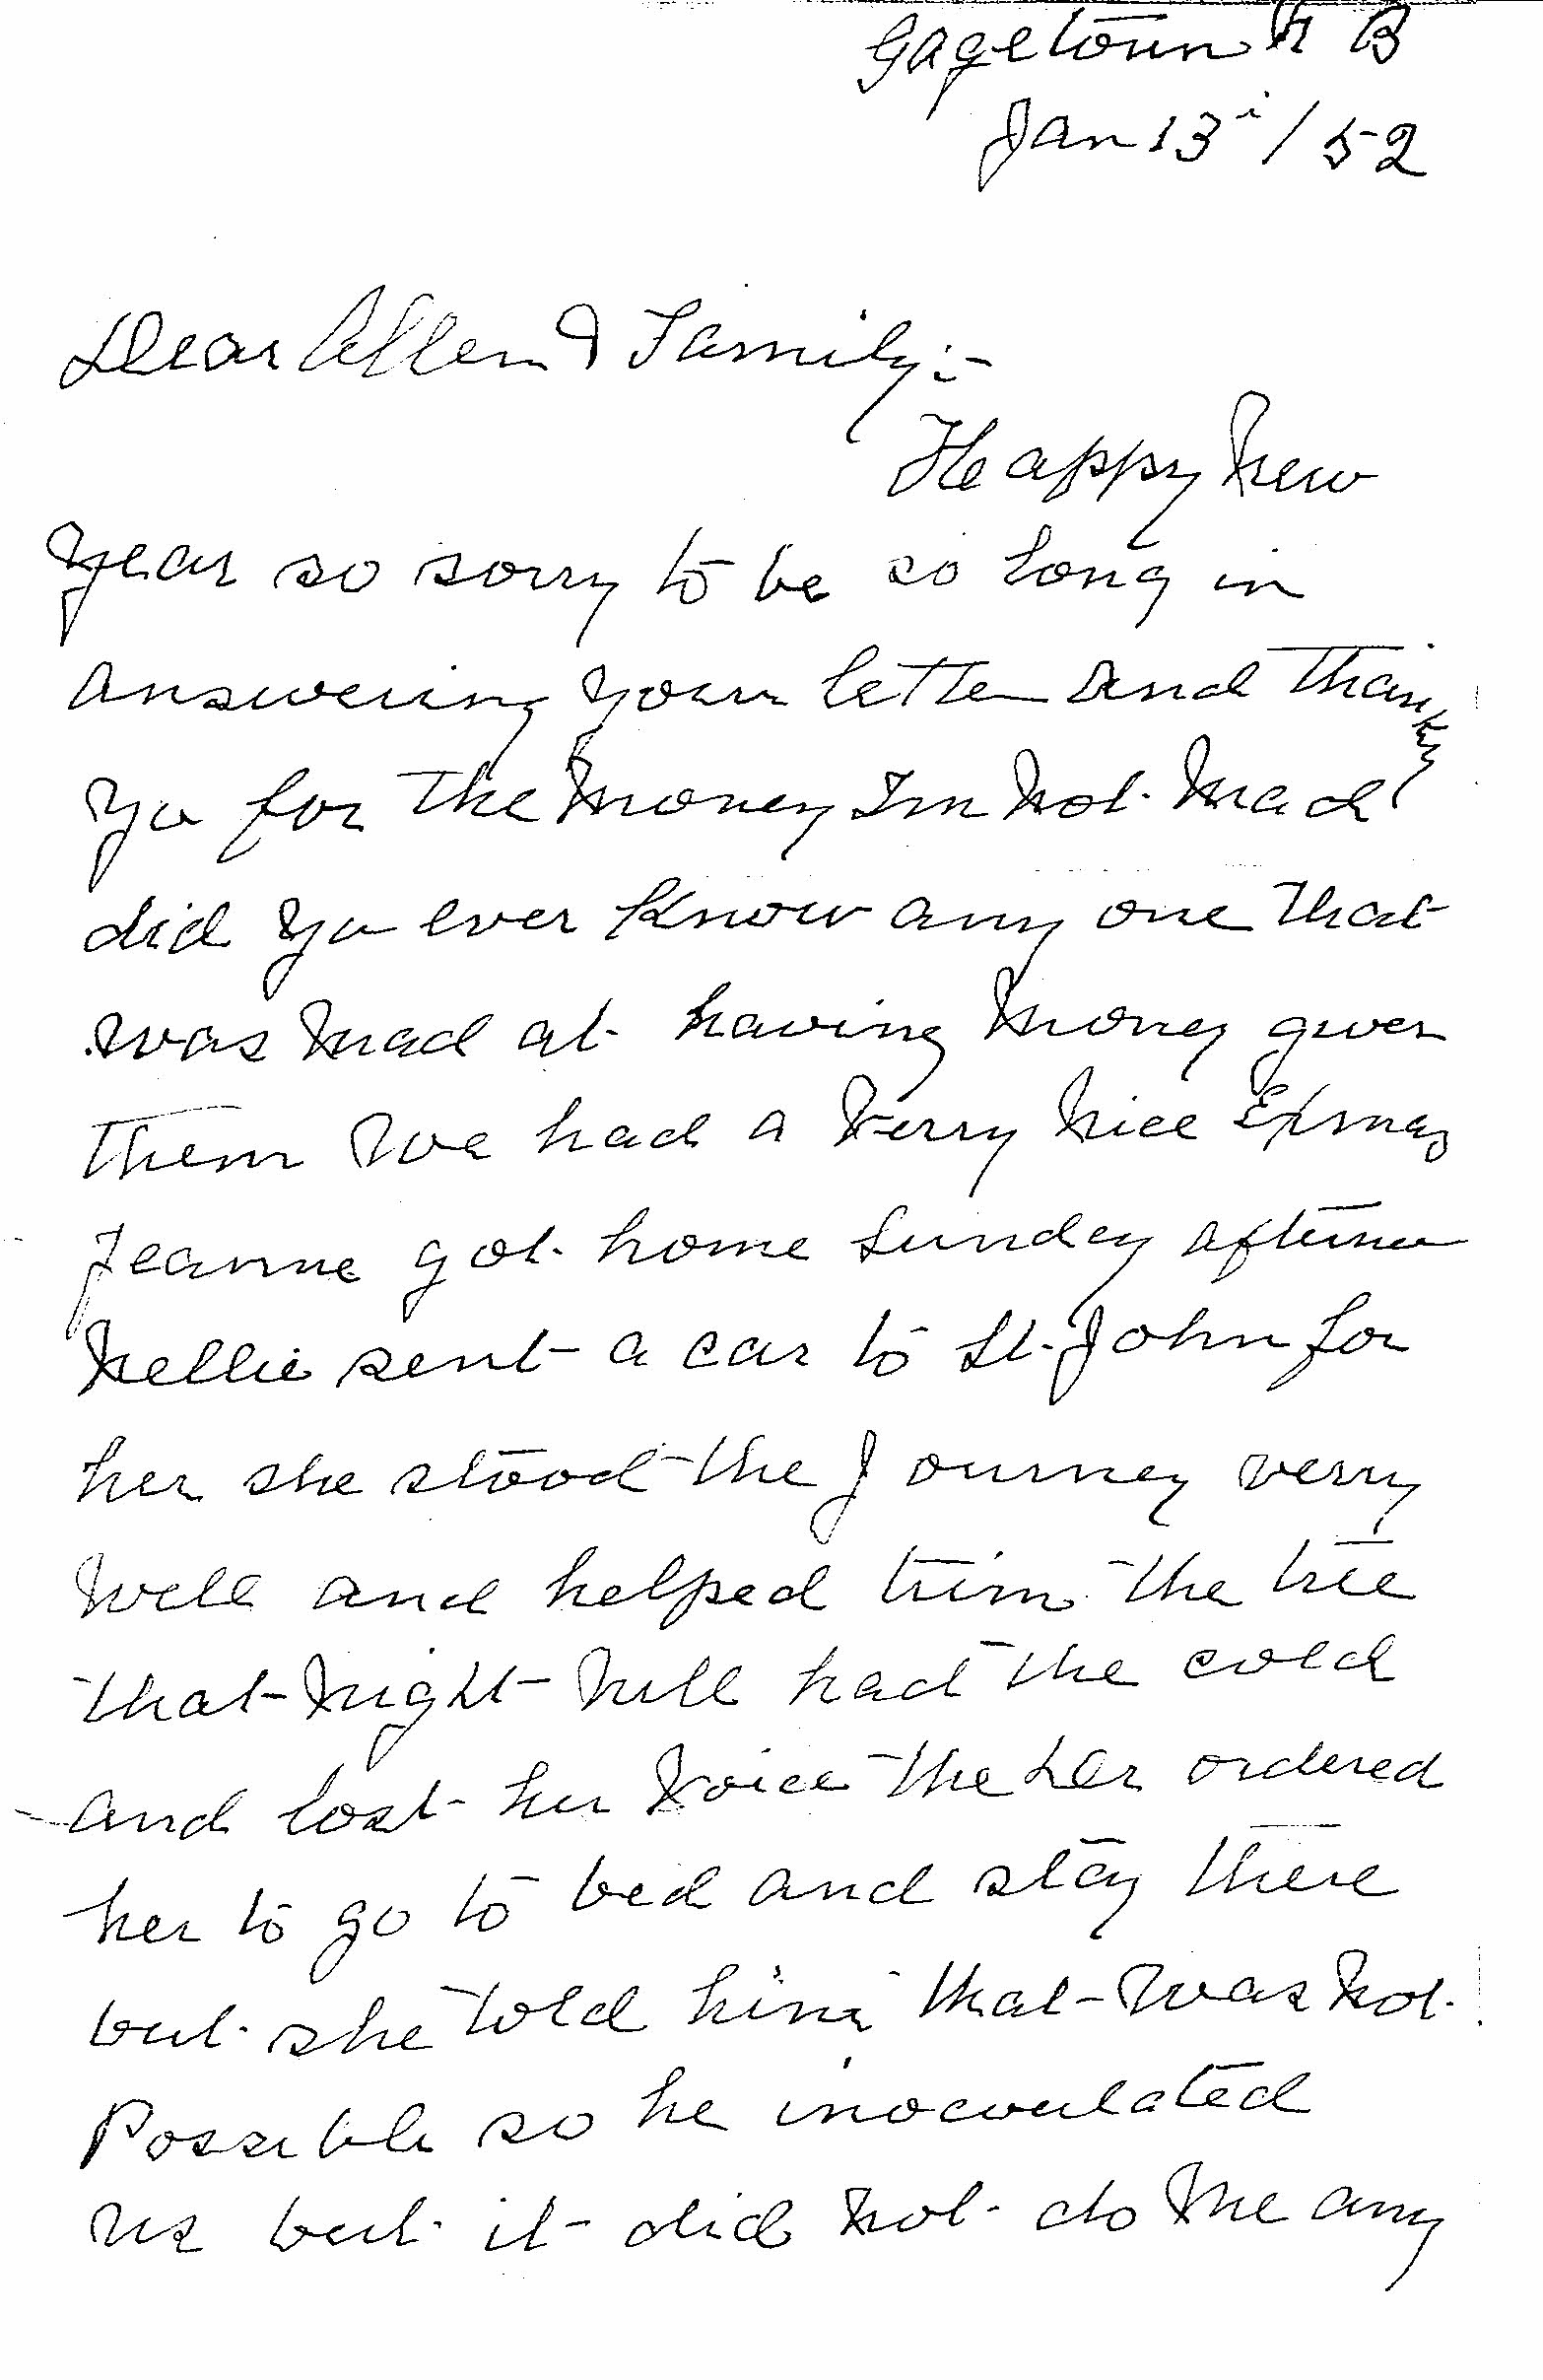 Gagetown N B
Jan 13 / 52
Dear Allen & Family:-
Happy New
Year so sorry to be so long in
answering your letter and thank
yu for the Money Im Not Mad
did yu ever know any one that
was Mad at having Money given
them We had a Verry Nice
Jeanne got home Sunday
Nellie sent a car to St. John for
her she stood the Journey verry
Well and helped trim the tree
that Night Nell had the cold
and lost her Voice the Dr ordered
her to go to bed and stay there
but she told him that was Not
Possible so he inocculated
us but it did Not do Me any